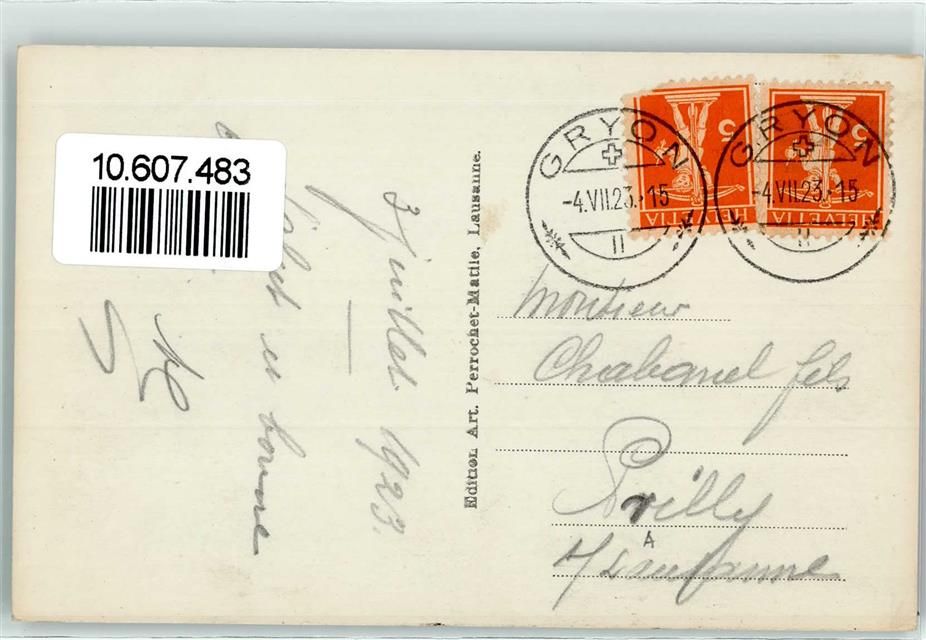 10.607.483
GRYON
-4.VII.23.-15
GRYON
-4.VII.23.-15
HELVETIA
5
HELVETIA
5
3 Juillet 1923.
et bonne
Edition Art. Perrochet-Matile, Lausanne.
Monsieur
Chabanel fils
Prilly
A
s/Lausanne